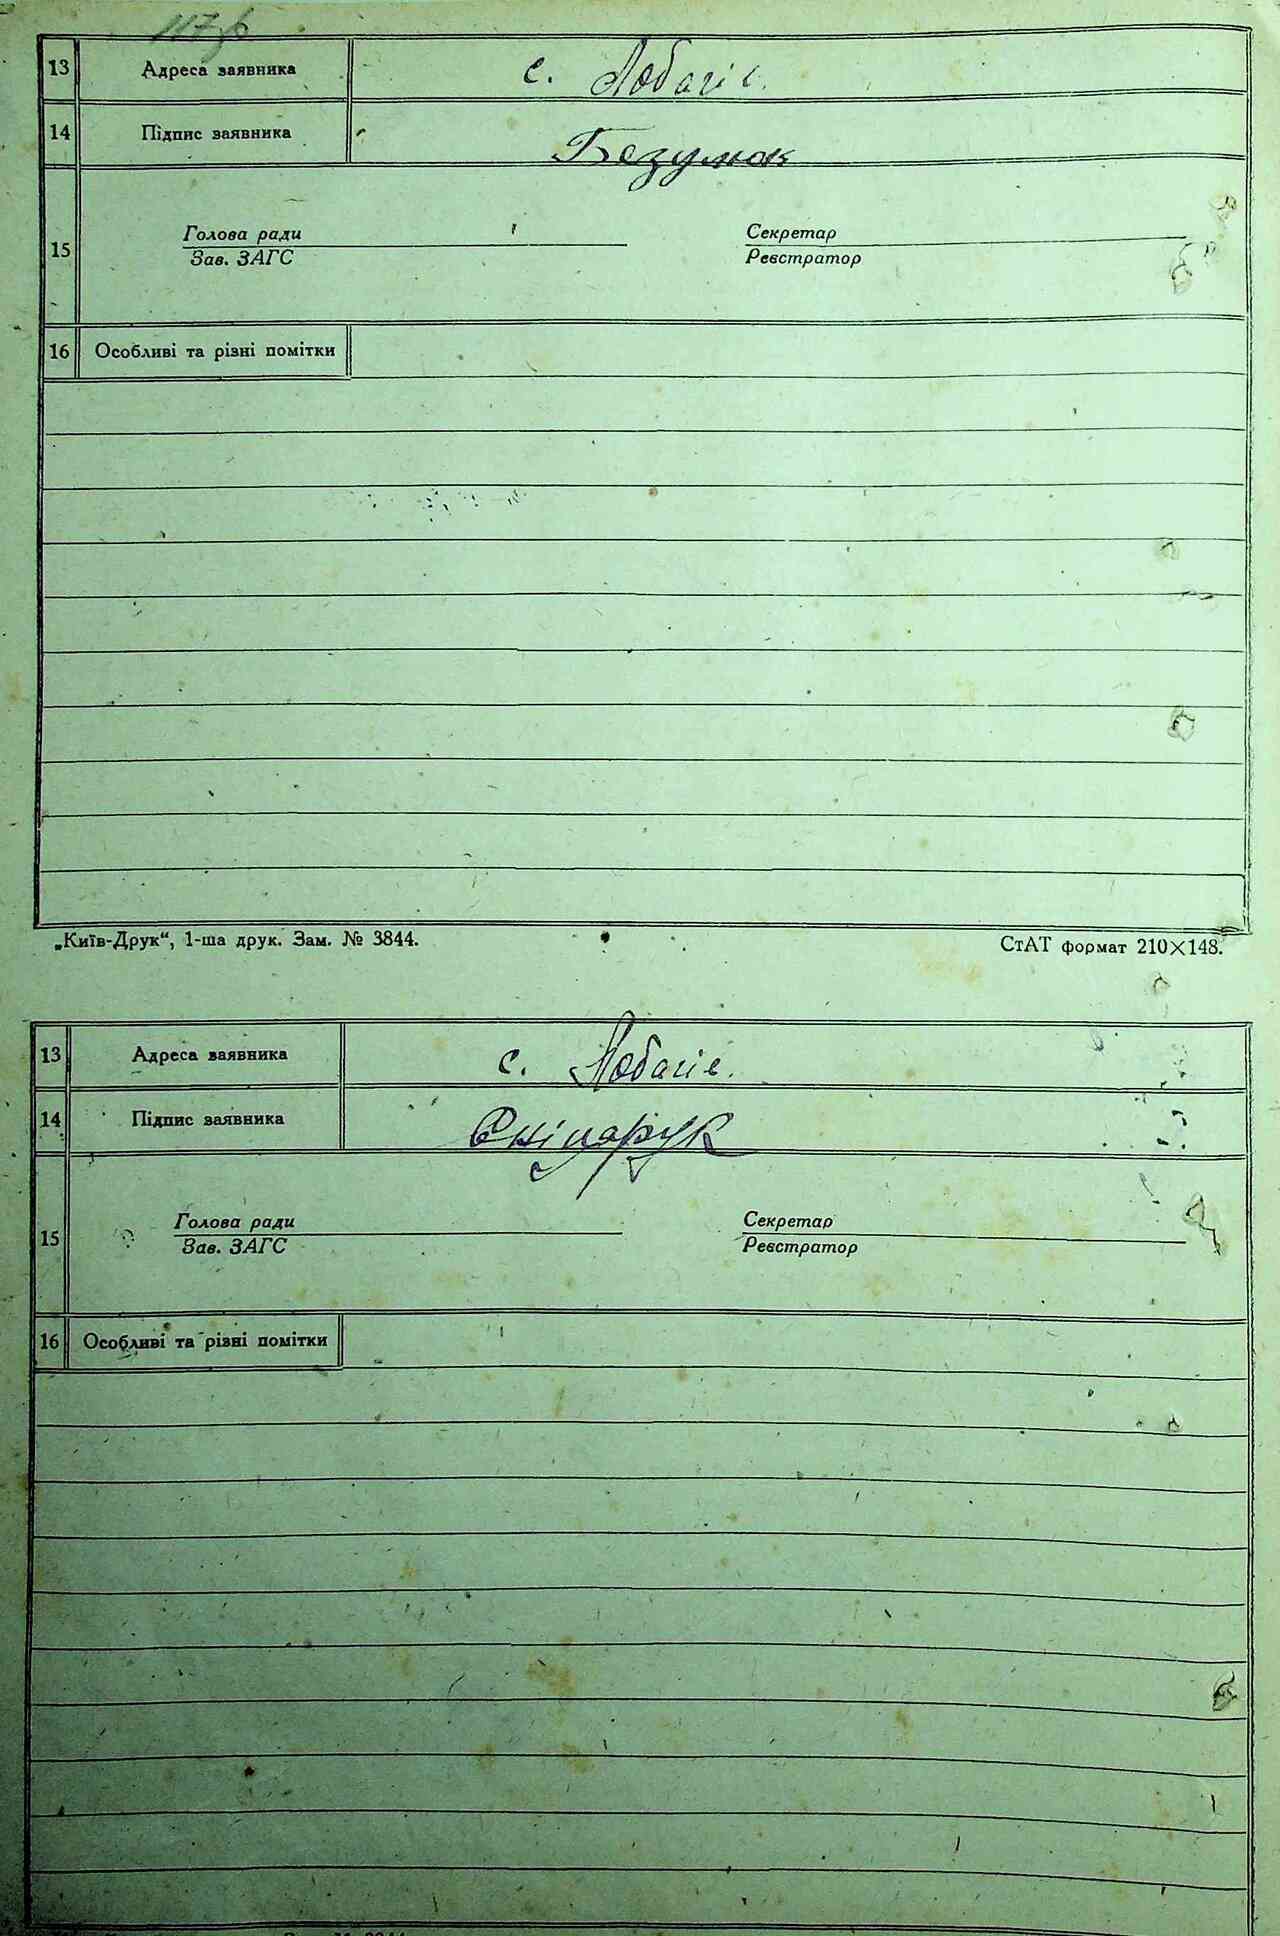 117зв
13 Адреса заявника с. Лобачів.
14 Підпис заявника Безумюк
15 Голова ради Секретар
Зав. ЗАГС Реєстратор
16 Особливі та різні помітки
„Київ-Друк“, 1-ша друк. Зам. № 3844. СтАТ формат 210×148.
13 Адреса заявника с. Лобачів.
14 Підпис заявника
15 Голова ради Секретар
Зав. ЗАГС Реєстратор
16 Особливі та різні помітки